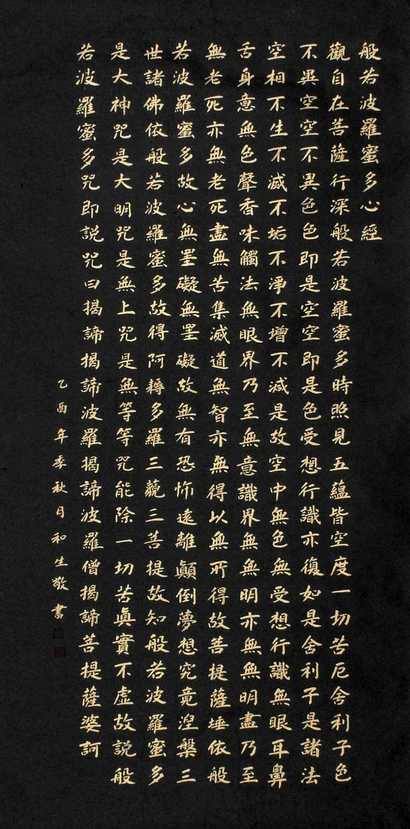 般若波羅蜜多心經
觀自在菩薩行深般若波羅蜜多時照見五蘊皆空度一切苦厄舍利子色
不異空空不異色色即是空空即是色受想行識亦復如是舍利子是諸法
空相不生不滅不垢不淨不增不減是故空中無色無受想行識無眼耳鼻
舌身意無色聲香味觸法無眼界乃至無意識界無無明亦無無明盡乃至
無老死亦無老死盡無苦集滅道無智亦無得以無所得故菩提薩埵依般
若波羅蜜多故心無罣礙無罣礙故無有恐怖遠離顛倒夢想究竟涅槃三
世諸佛依般若波羅蜜多故得阿耨多羅三藐三菩提故知般若波羅蜜多
是大神咒是大明咒是無上咒是無等等咒能除一切苦眞實不虛故說般
若波羅蜜多咒即說咒曰揭諦揭諦波羅揭諦波羅僧揭諦菩提薩婆訶
乙酉年季秋月和生敬書